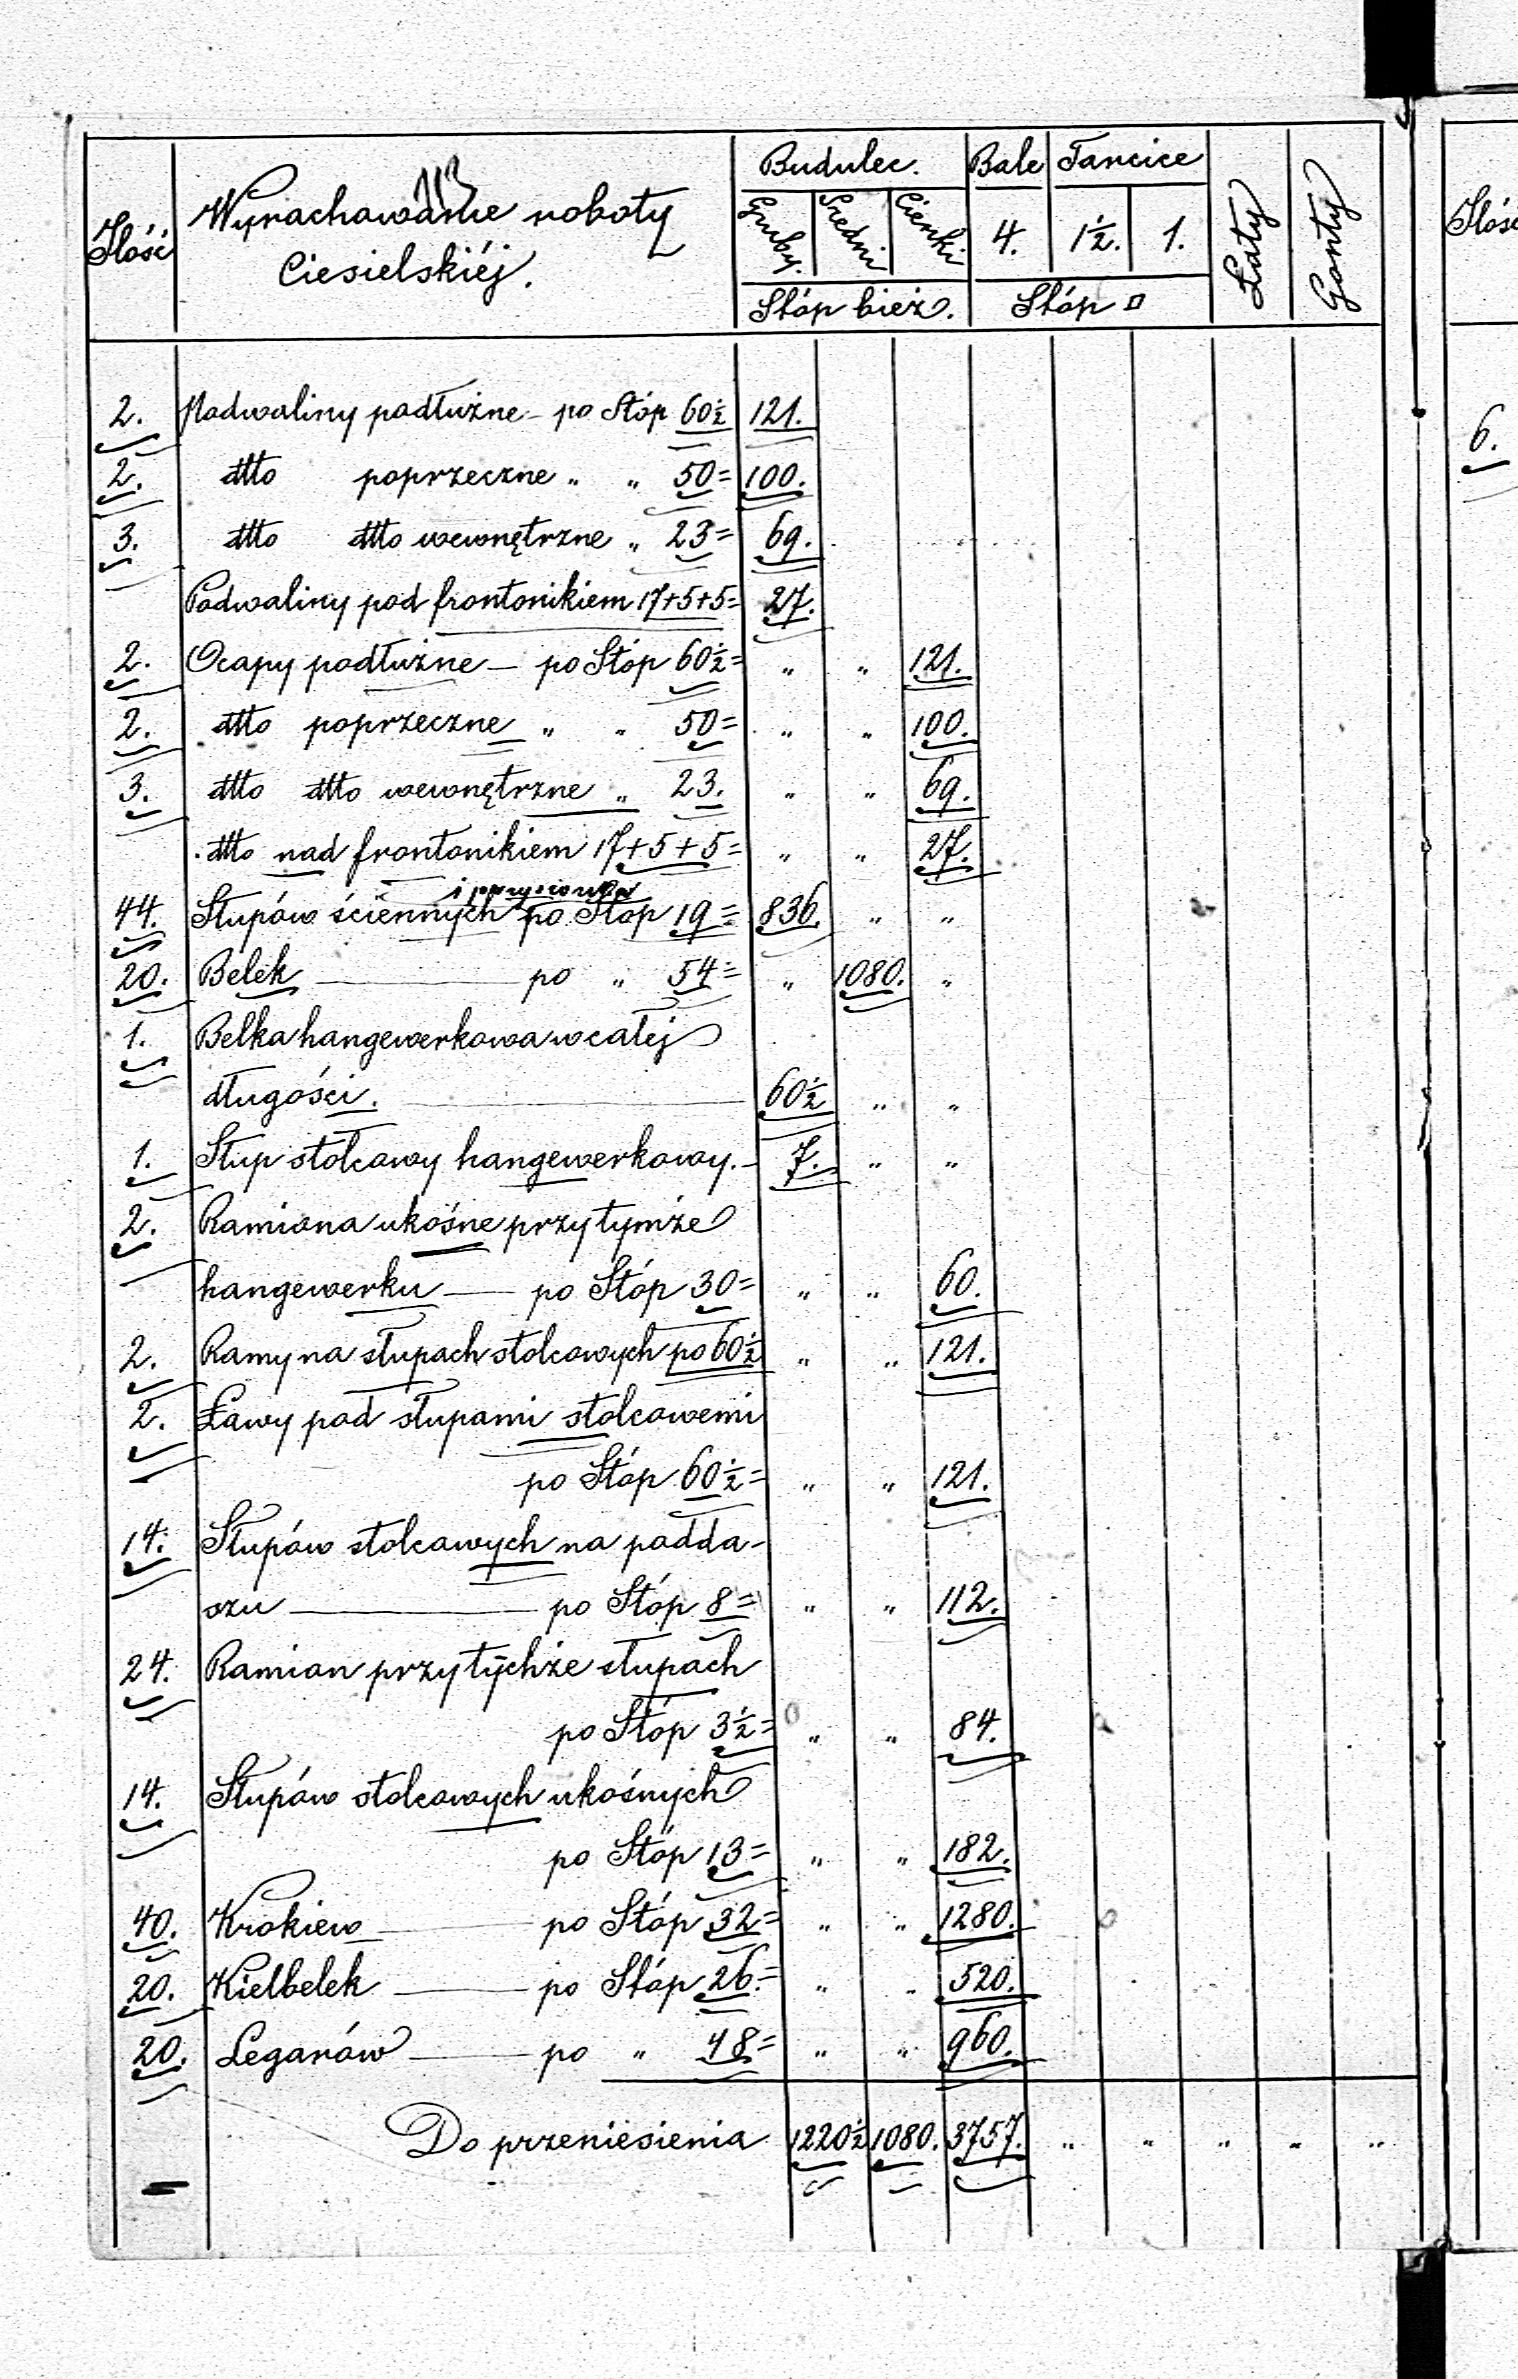 113
Ilość
Wyrachowanie roboty
Ciesielskiéj.
Budulec.
Bale
Tarcice
Gruby.
Średni
Cienki
4.
1½.
1.
Łaty
Gonty
Stóp bież.
Stóp □
2. Podwaliny podłużne – po Stóp 60½ 121.
2. dtto poprzeczne „ „ 50= 100.
3. dtto dtto wewnętrzne „ 23= 69.
Podwaliny pod frontonikiem 17+5+5= 27.
2. Ocapy podłużne – po Stóp 60½= „ „ 121.
2. dtto poprzeczne „ „ 50= „ „ 100.
3. dtto dtto wewnętrzne „ 23. „ „ 69.
dtto nad frontonikiem 17+5+5= „ „ 27.
44. Słupów ściennych po Stóp 19= 836. „ „
20. Belek — po „ 54= „ 1080. „
1. Belka hangewerkowa w całej
długości. — 60½ „ „
1. Słup stolcowy hangewerkowy. – 7. „ „
2. Ramiona ukośne przy tymże
hangewerku — po Stóp 30= „ „ 60.
2. Ramy na słupach stolcowych po 60½ „ „ 121.
2. Ławy pod słupami stolcowemi
po Stóp 60½= „ „ 121.
14. Słupów stolcowych na podda-
szu — po Stóp 8= „ „ 112.
24. Ramion przy tychże słupach
po Stóp 3½= „ „ 84.
14. Słupów stolcowych ukośnych
po Stóp 13= „ „ 182.
40. Krokiew — po Stóp 32= „ „ 1280.
20. Kielbelek — po Stóp 26= „ „ 520.
20. Legarów — po „ 48= „ „ 960.
Do przeniesienia 1220½ 1080. 3757. „ „ „ „ „
Ilość
6.